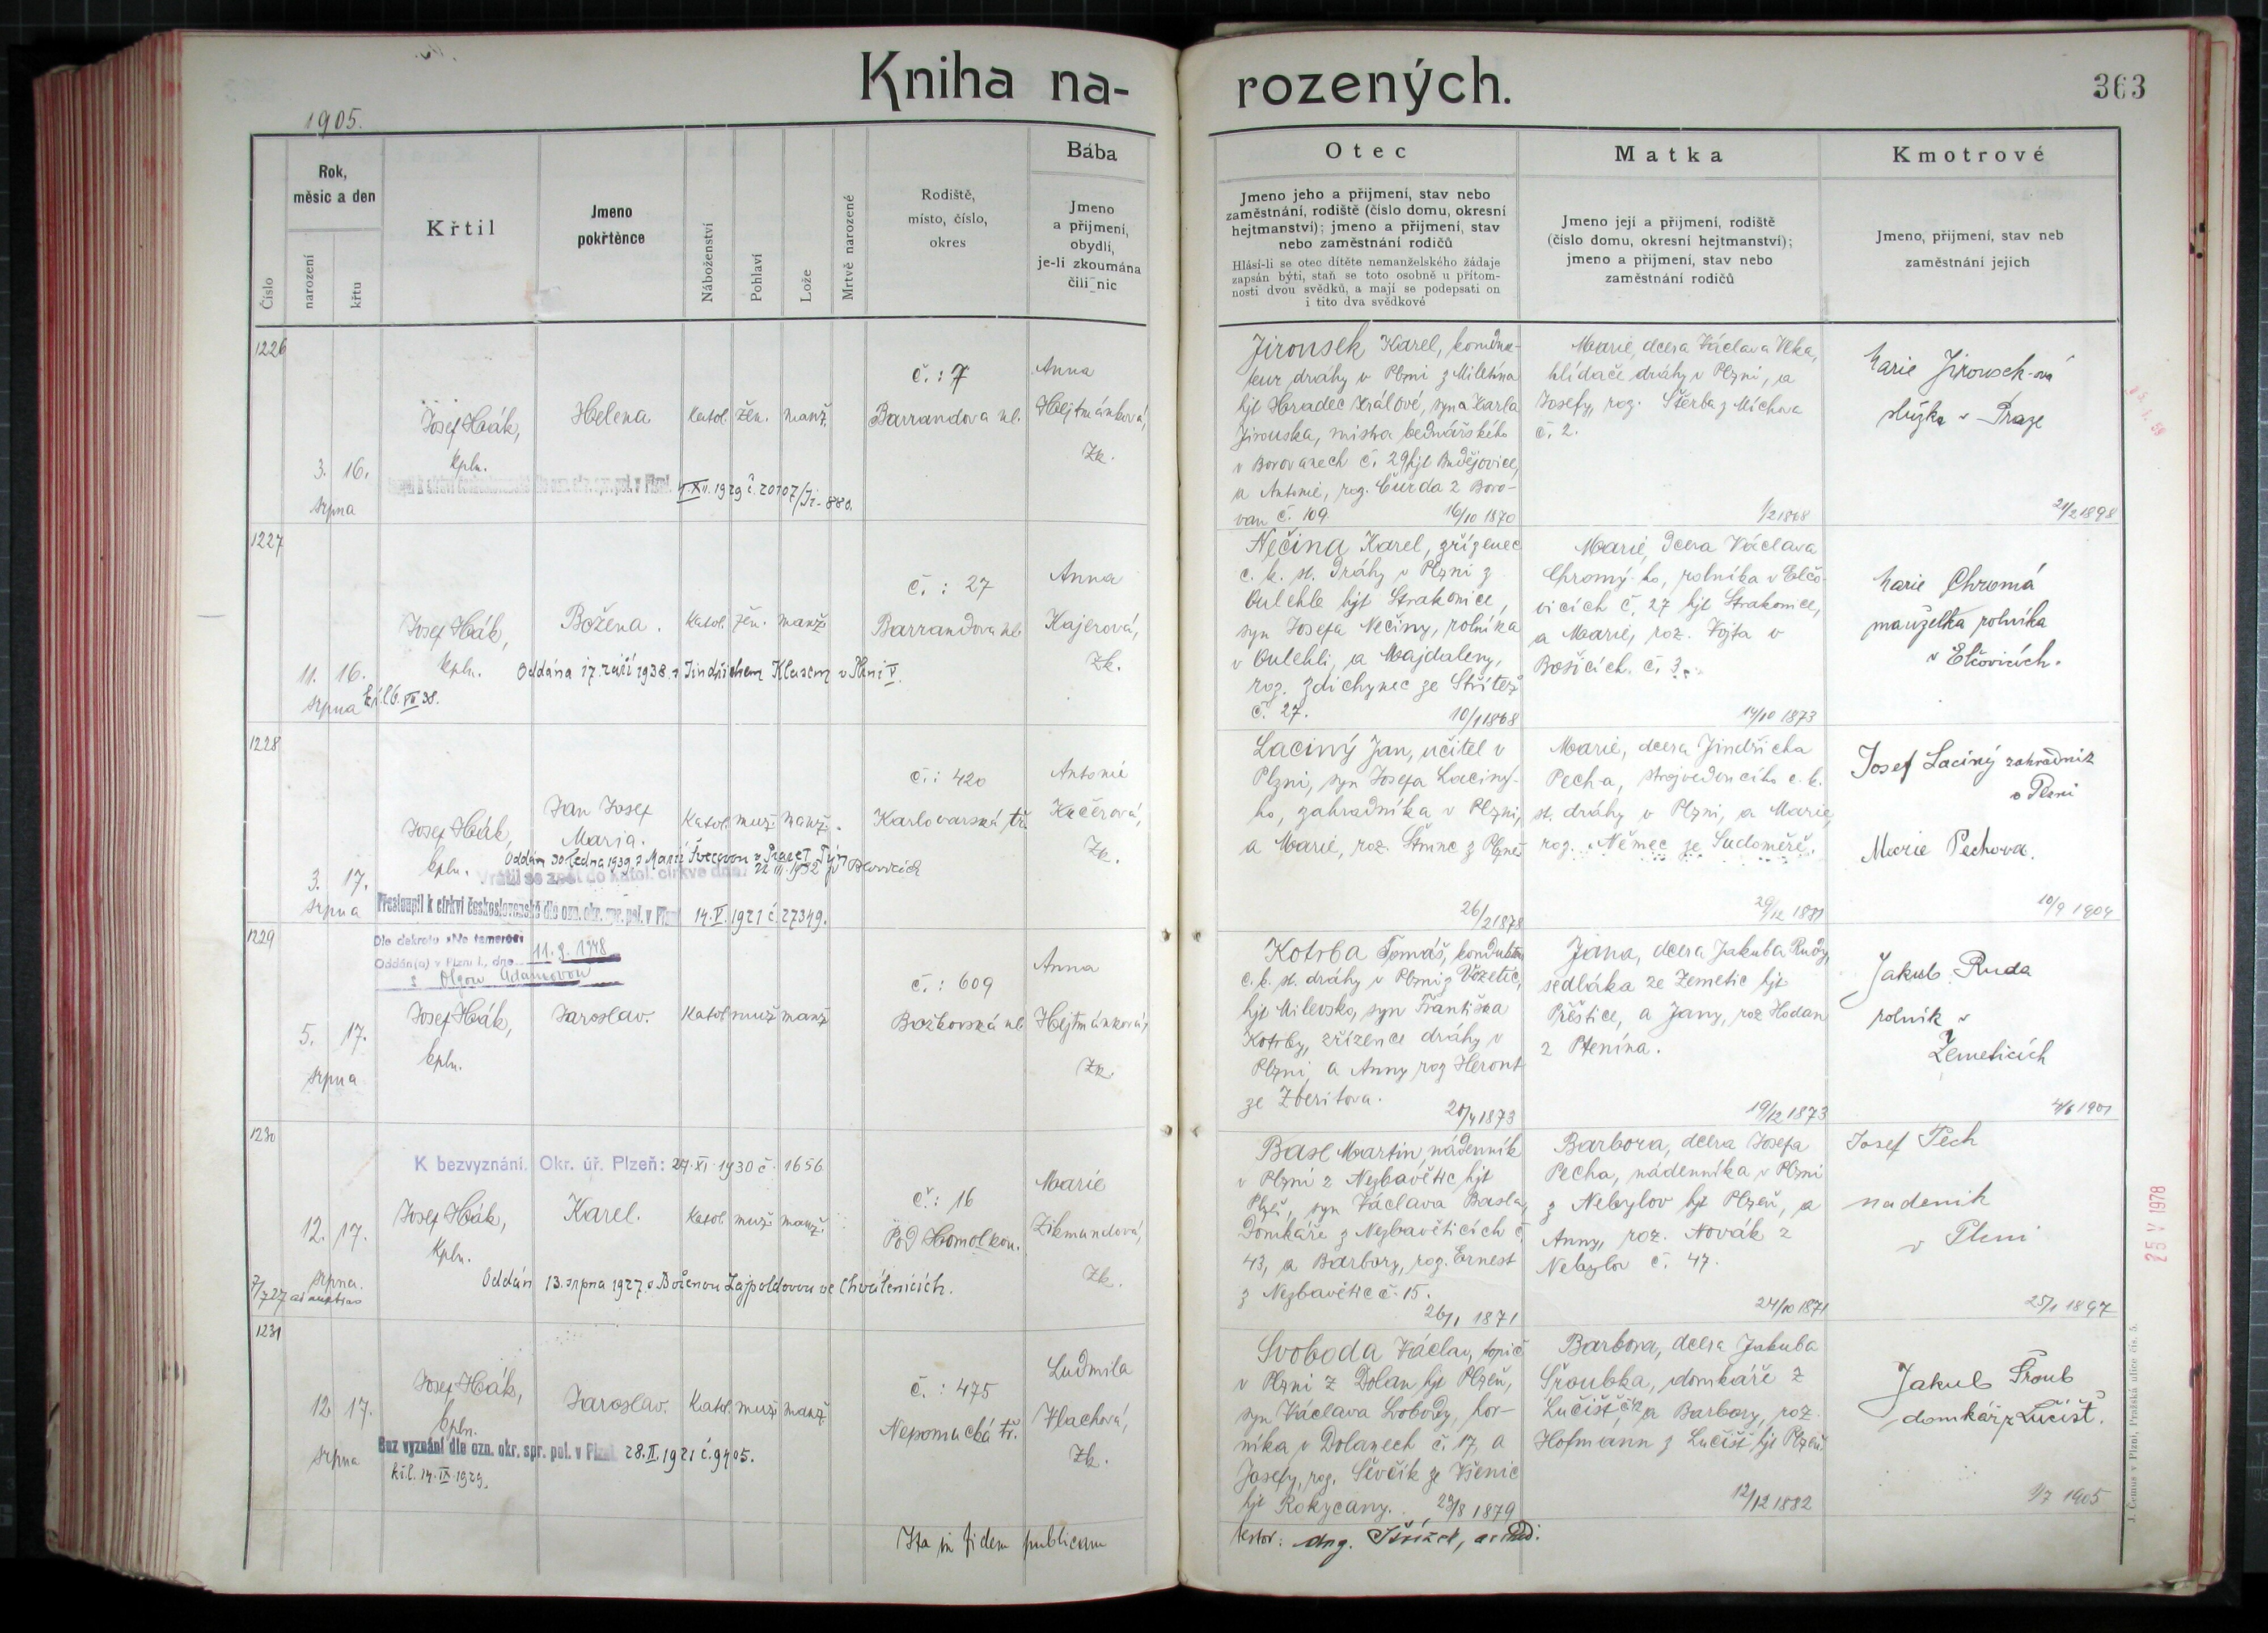 Kniha na-
rozených.
363
1905.
Číslo
Rok,
měsíc a den
narození
křtu
Křtil
Jmeno
pokřtěnce
Náboženství
Pohlaví
Lože
Mrtvě narozené
Rodiště,
místo, číslo,
okres
Bába
Jmeno
a příjmení,
obydlí,
je-li zkoumána
čili nic
Otec
Jmeno jeho a příjmení, stav nebo
zaměstnání, rodiště (číslo domu, okresní
hejtmanství); jmeno a příjmení, stav
nebo zaměstnání rodičů
Hlásí-li se otec dítěte nemanželského žádaje
zapsán býti, staň se toto osobně u přítom-
nosti dvou svědků, a mají se podepsati on
i tito dva svědkové
Matka
Jmeno její a příjmení, rodiště
(číslo domu, okresní hejtmanství);
jmeno a příjmení, stav nebo
zaměstnání rodičů
Kmotrové
Jmeno, příjmení, stav neb
zaměstnání jejich
1226
3. 16.
srpna
Josef Hák,
kpln.
Helena
katol. žen. manž.
1.XII.1929 č. 20107/Ji-880.
č.: 7
Barrandova ul.
Anna
Hejtmánková,
Zk.
Jirousek Karel, konduk-
teur dráhy v Plzni z Miletína
hjt Hradec Králové, syn Karla
Jirouska, mistra bednářského
v Borovanech č. 29 hjt Budějovice,
a Antonie, roz. Čurda z Boro-
van č. 109. 16/10 1870
Marie, dcera Václava Vlka,
hlídače dráhy v Plzni, a
Josefy, roz. Štěrba z Míchova
č. 2.
1/2 1868
Marie Jirousek-ová
služka v Praze
21/2 1898
1227
11. 16.
srpna
Josef Hák,
kpln.
Božena.
katol. žen. manž.
Oddána 17. září 1938 s Jindřichem Klusem v Plzni V.
č.: 27
Barrandova ul.
Anna
Kajerová,
Zk.
Nečina Karel, zřízenec
c. k. st. dráhy v Plzni z
Oulehle hjt Strakonice,
syn Josefa Nečiny, rolníka
v Oulehli, a Majdaleny,
roz. Zdichynec ze Střítež
č. 27. 10/1 1868
Marie, dcera Václava
Chromý-ho, rolníka v Elčo-
vicích č. 27 hjt Strakonice,
a Marie, roz. Vojta v
Bošicích č. 3.
14/10 1873
Marie Chromá
manželka rolníka
v Elčovicích.
1228
3. 17.
srpna
Josef Hák,
kpln.
Jan Josef
Maria.
katol. muž. manž.
Oddán 30. ledna 1939 s Marií Švecovou v Praze I, Týn
Vrátil se zpět do katol. církve dne: 22.III.1932 v Blovicích
Přestoupil k církvi československé dle ozn. okr. spr. pol. v Plzni 14.V.1921 č. 27349.
č.: 420
Karlovarská tř.
Antonie
Kučerová,
Zk.
Laciný Jan, učitel v
Plzni, syn Josefa Laciný-
ho, zahradníka v Plzni,
a Marie, roz. Štrunc z Plzně
26/2 1878
Marie, dcera Jindřicha
Pecha, strojvedoucího c. k.
st. dráhy v Plzni, a Marie,
roz. Němec ze Sudoměře.
29/12 1881
Josef Laciný zahradník
v Plzni
Marie Pechova.
10/9 1904
1229
Dle dekretu »Ne temere«
Oddán(a) v Plzni I., dne 11.9.1948
s Olgou Adamovou
5. 17.
srpna
Josef Hák,
kpln.
Jaroslav.
katol. muž. manž.
č.: 609
Božkovská ul.
Anna
Hejtmánková,
Zk.
Kotrba Tomáš, kondukteur
c. k. st. dráhy v Plzni z Vozetic,
hjt Milevsko, syn Františka
Kotrby, zřízence dráhy v
Plzni, a Anny roz. Heront
ze Zběšitova.
20/4 1873
Jana, dcera Jakuba Rudy,
sedláka ze Zemětic hjt
Přeštice, a Jany, roz. Hodan
z Ptenína.
19/12 1873
Jakub Ruda
rolník v
Zemeticích
4/6 1901
1230
K bezvyznání. Okr. úř. Plzeň: 27.XI.1930 č. 1656
12. 17.
srpna.
Josef Hák,
kpln.
Karel.
katol. muž. manž.
Oddán 13. srpna 1927 s Boženou Lajpoldovou ve Chválenicích.
č.: 16
Pod Homolkou.
Marie
Zikmundová,
Zk.
Basl Martin, nádenník
v Plzni z Nezbavětic hjt
Plzeň, syn Václava Basla,
Domkáře z Nezbavěticích č.
43, a Barbory, roz. Ernest
z Nezbavětic č. 15.
26/1 1871
Barbora, dcera Josefa
Pecha, nádenníka v Plzni
z Nebylov hjt Plzeň, a
Anny, roz. Novák z
Nebylov č. 47.
24/10 1871
Josef Pech
nadenik
v Plzni
25/1 1897
1231
12. 17.
srpna
Josef Hák,
kpln.
Jaroslav.
katol. muž. manž.
Bez vyznání dle ozn. okr. spr. pol. v Plzni 28.II.1921 č. 9405.
k.i.l. 14.IX.1929.
č.: 475
Nepomucká tř.
Ludmila
Vlachová,
Zk.
Svoboda Václav, topič
v Plzni z Dolan hjt Plzeň,
syn Václava Svobody, hor-
níka v Dolanech č. 17, a
Josefy, roz. Ševčík ze Všenic
hjt Rokycany. 29/8 1879
Barbora, dcera Jakuba
Šroubka, domkáře z
Lučišť, a Barbory, roz.
Hofmann z Lučišť hjt Plzeň
12/12 1882
Jakub Šroub
domkář z Lučišť.
1/7 1905
Ita in fidem publicam
25 V 1978
J. Čemus v Plzni, Pražská ulice čís. 5.